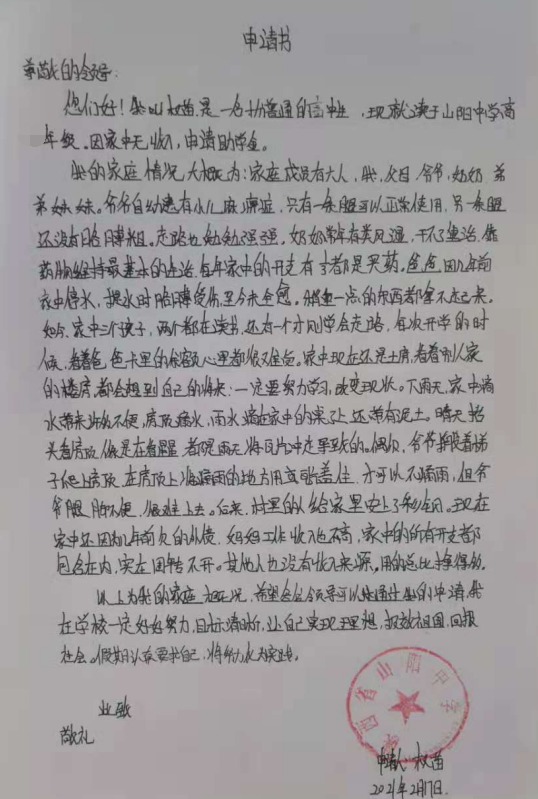 申请书
尊敬的领导:
您们好!我叫权苗,是一名普通的高中生,现就读于山阳中学高
年级。因家中无收入,申请助学金。
我的家庭情况大概为:家庭成员有六人,我,父母,爷爷,奶奶,弟
弟妹妹。爷爷自幼患有小儿麻痹症,只有一条腿可以正常使用,另一条腿
还没有胳膊粗。走路也勉勉强强,奶奶常年有类风湿,干不了重活,靠
药物维持最基本的生活,每年家中的开支有 都是买药。爸爸因几年前
家中停水,提水时胳膊受伤至今未全愈。稍重一点的东西都拿不起来。
如今,家中三个孩子,两个都在读书,还有一个才刚学会走路,每次开学的时
候,看着爸爸卡里的余额心里都很难受。家中现在还是土房,看着别人家
的楼房,都会想到自己的将来:一定要努力学习,改变现状。下雨天,家中滴
水带来许多不便,房顶漏水,雨水滴在家中的 上还带有泥土。晴天抬
头看房顶像是在看星星,都是雨天将瓦片冲走导致的。偶尔,爷爷 着梯
子爬上房顶,在房顶上将漏雨的地方用 盖住,才可以不漏雨,但爷
爷腿脚不便,很难上去。后来,村里的人给家里安上了 。现在
家中还因几年前欠的外债,妈妈工作收入也不高,家中的所有开支都
包含在内,实在周转不开。其他人也没有收入来源。用的总比挣得多。
以上为我的家庭概况,希望各位领导可以通过我的申请,我
在学校一定好好努力,目标清晰,让自己实现理想,报效祖国,回报
社会。假期认真要求自己,将努力化为实践。
此致
敬礼
陕西省山阳中学
申请人 权苗
2021年2月17日